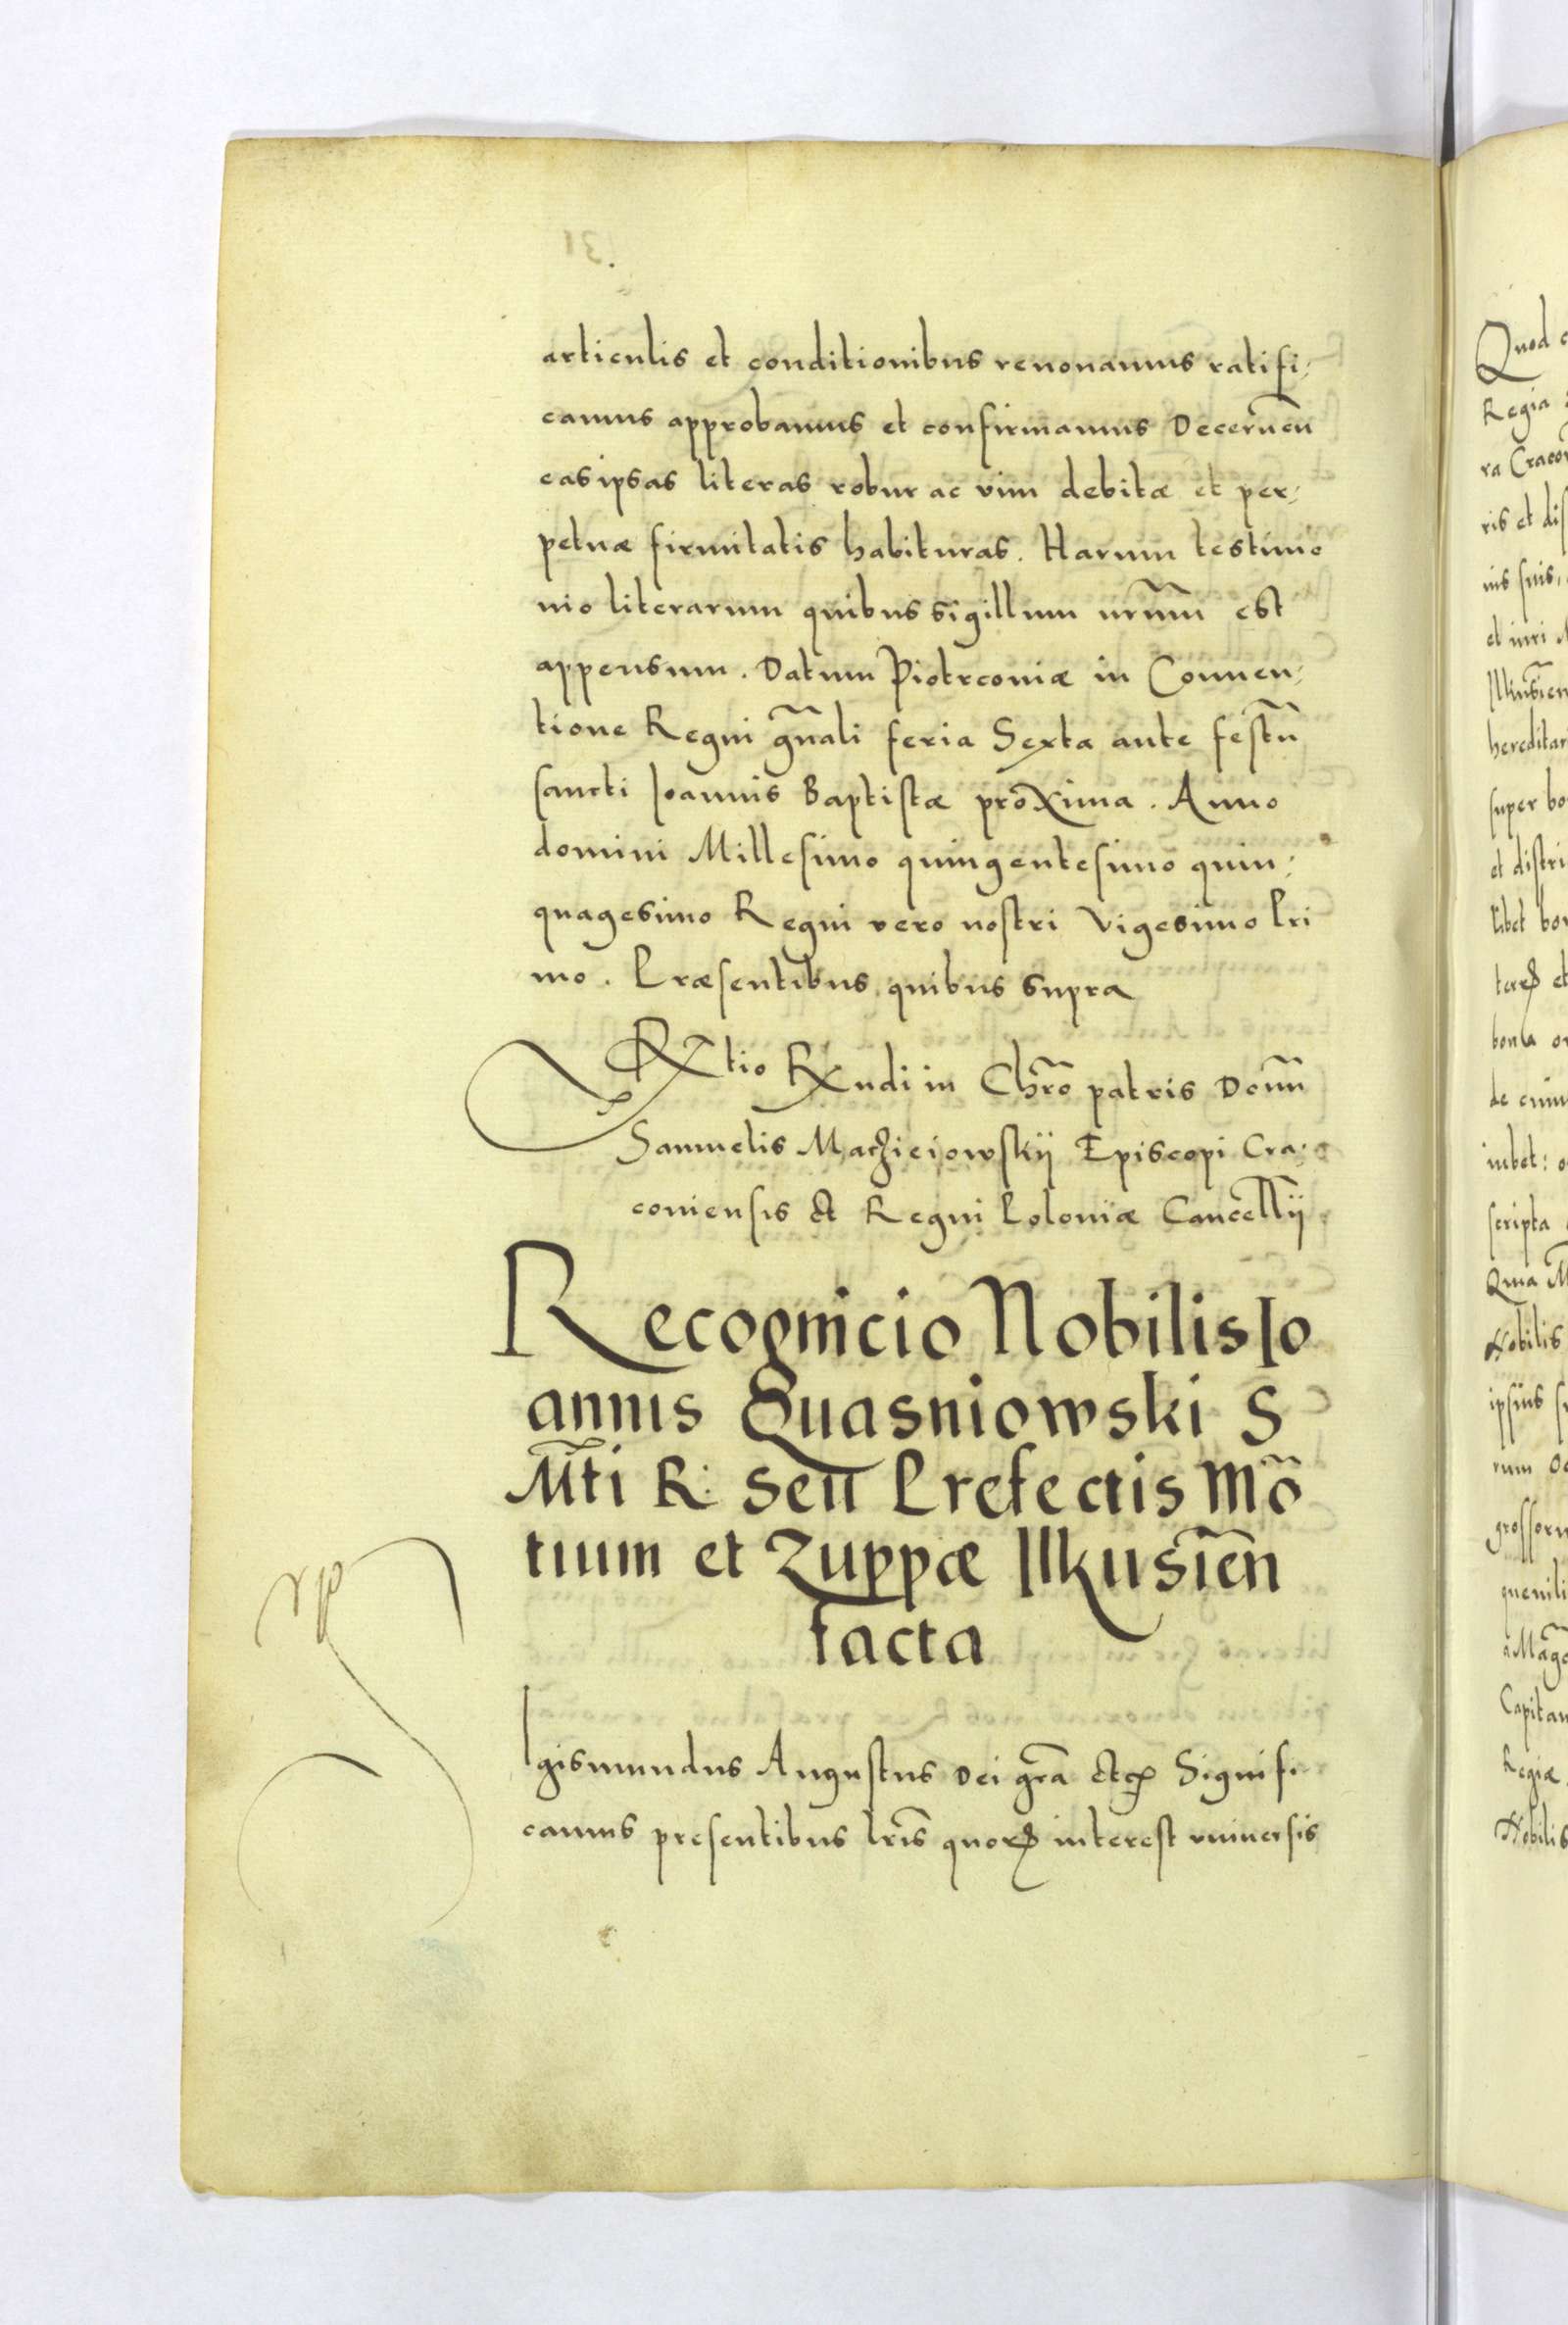 articulis et conditionibus renouamus ratifi,
camus approbamus et confirmamus Decernen̄
eas ipsas literas robur ac vim debitæ et per,
petuæ firmitatis habituras. Harum testimo
nio literarum quibus sigillum nr̄um est
appensum. Datum Piotrcouiæ in Conuen,
tione Regni gn̄ali feria Sexta ante festū
sancti Joannis Baptistæ proxima. Anno
domini Millesimo quingentesimo quin,
quagesimo Regni vero nostri Vigesimo Pri
mo. Præsentibus quibus supra
Rtio Rndi in Chrō patris Domn̄
Samuelis Maczieiowskij Episcopi Cra,
couiensis et Regni Poloniæ Cancellīj
Recognicio Nobilis Jo
annis Quasniowski S
Mti R: Seu Prefectis Mō
tium et Zuppæ Ilkusien̄
facta
Igismundus Augustus Dei grā etc Signifi
camus presentibus lrīs quorꝝ interest vniuersis
Quod
Regia
ra Craco
ris et dis
nis suis,
et iuri
Illkusien
hereditar
super bo
et distri
libet bo
terꝝ et
de cuius
iubet:
scripta
Quia M
Nobilis
ipsius
rum
grossoru
a Mag
Capitan
Regiæ
Nobilis